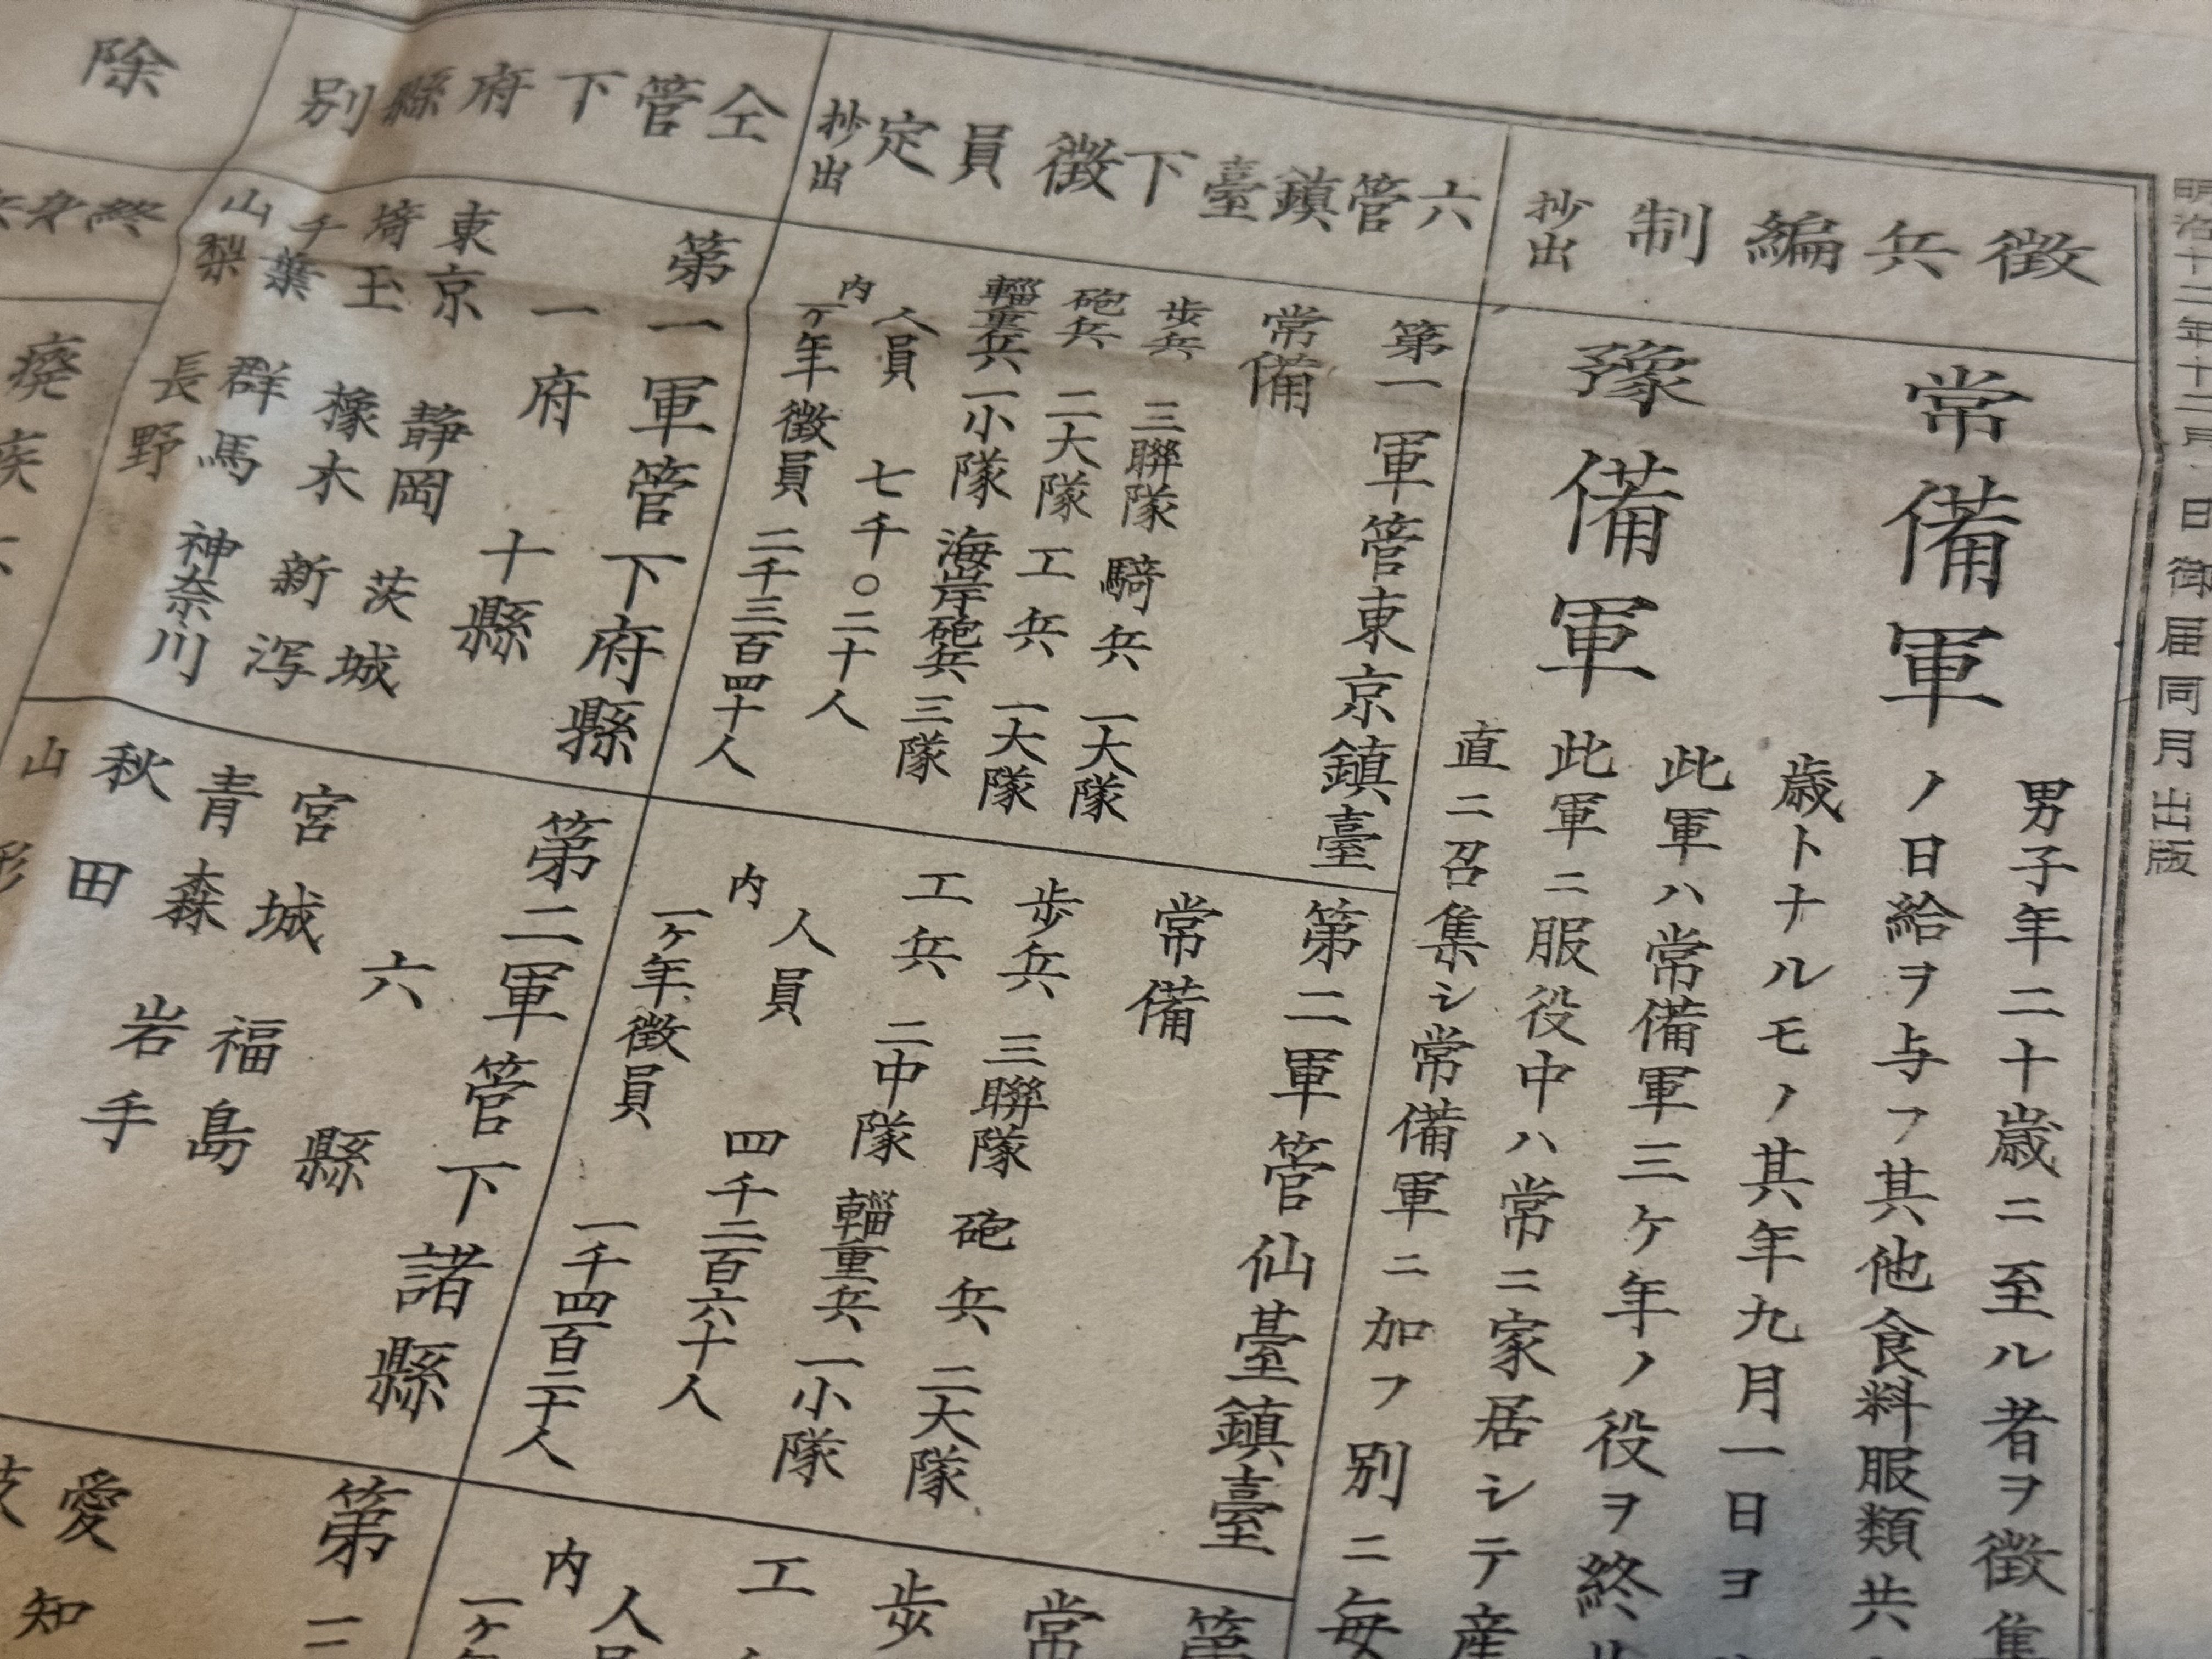 明治十二年十二月 日御届同月出版
徴兵編制抄出
常備軍
男子年二十歳ニ至ル者ヲ徴集
ノ日給ヲ与フ其他食料服類共
歳トナルモノノ其年九月一日ヨ
豫備軍
此軍ハ常備軍三ケ年ノ役ヲ終
此軍ニ服役中ハ常ニ家居シテ産
直ニ召集シ常備軍ニ加フ別ニ毎
六管鎮臺下徴員定抄出
第一軍管東京鎮臺
常備
歩兵 三聯隊 騎兵 一大隊
砲兵 二大隊 工兵 一大隊
輜重兵 一小隊 海岸砲兵 三隊
人員 七千〇二十人
内 一ケ年徴員 二千三百四十人
第二軍管仙臺鎮臺
常備
歩兵 三聯隊 砲兵 二大隊
工兵 二中隊 輜重兵 一小隊
人員 四千二百六十人
内 一ケ年徴員 一千四百二十人
第
常
歩
工
人
内 一ケ年
仝管下府縣別
第一軍管下府縣
一府十縣
東京 静岡 茨城
埼玉 橡木 新泻
千葉 群馬 神奈川
山梨 長野
第二軍管下諸縣
六縣
宮城 福島
青森 岩手
秋田
山形
第
愛知
除
終身
廢疾